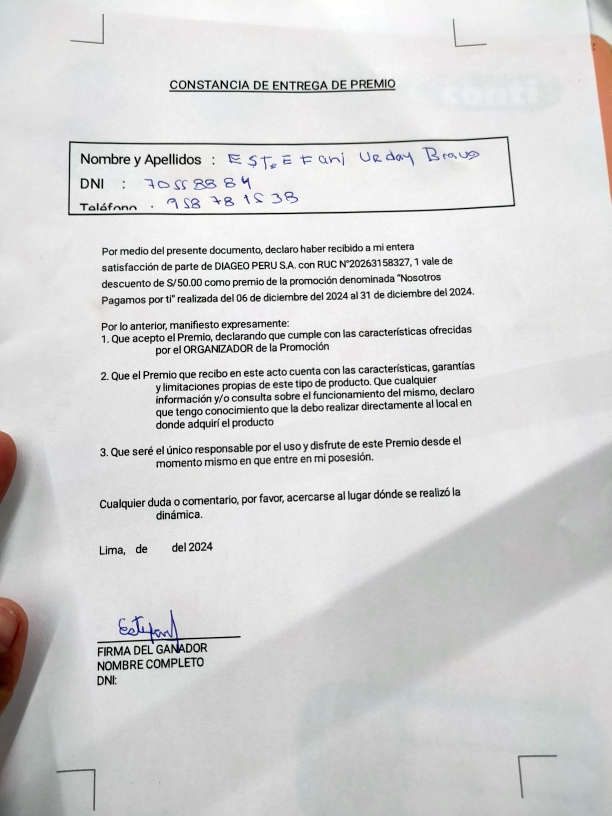 conti
CONSTANCIA DE ENTREGA DE PREMIO
Nombre y Apellidos : ESTEFani Urday Bravo
DNI : 70558884
Teléfono : 958781538
Por medio del presente documento, declaro haber recibido a mi entera
satisfacción de parte de DIAGEO PERU S.A. con RUC N°20263158327, 1 vale de
descuento de S/50.00 como premio de la promoción denominada "Nosotros
Pagamos por ti" realizada del 06 de diciembre del 2024 al 31 de diciembre del 2024.
Por lo anterior, manifiesto expresamente:
1. Que acepto el Premio, declarando que cumple con las características ofrecidas
por el ORGANIZADOR de la Promoción
2. Que el Premio que recibo en este acto cuenta con las características, garantías
y limitaciones propias de este tipo de producto. Que cualquier
información y/o consulta sobre el funcionamiento del mismo, declaro
que tengo conocimiento que la debo realizar directamente al local en
donde adquirí el producto
3. Que seré el único responsable por el uso y disfrute de este Premio desde el
momento mismo en que entre en mi posesión.
Cualquier duda o comentario, por favor, acercarse al lugar dónde se realizó la
dinámica.
Lima, de del 2024
FIRMA DEL GANADOR
NOMBRE COMPLETO
DNI: